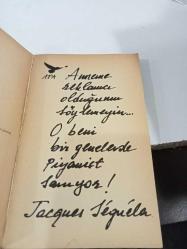 AFA
Anneme
reklamcı
olduğumu
söylemeyin...
O beni
bir genelevde
Piyanist
Sanıyor!
Jacques Séguéla